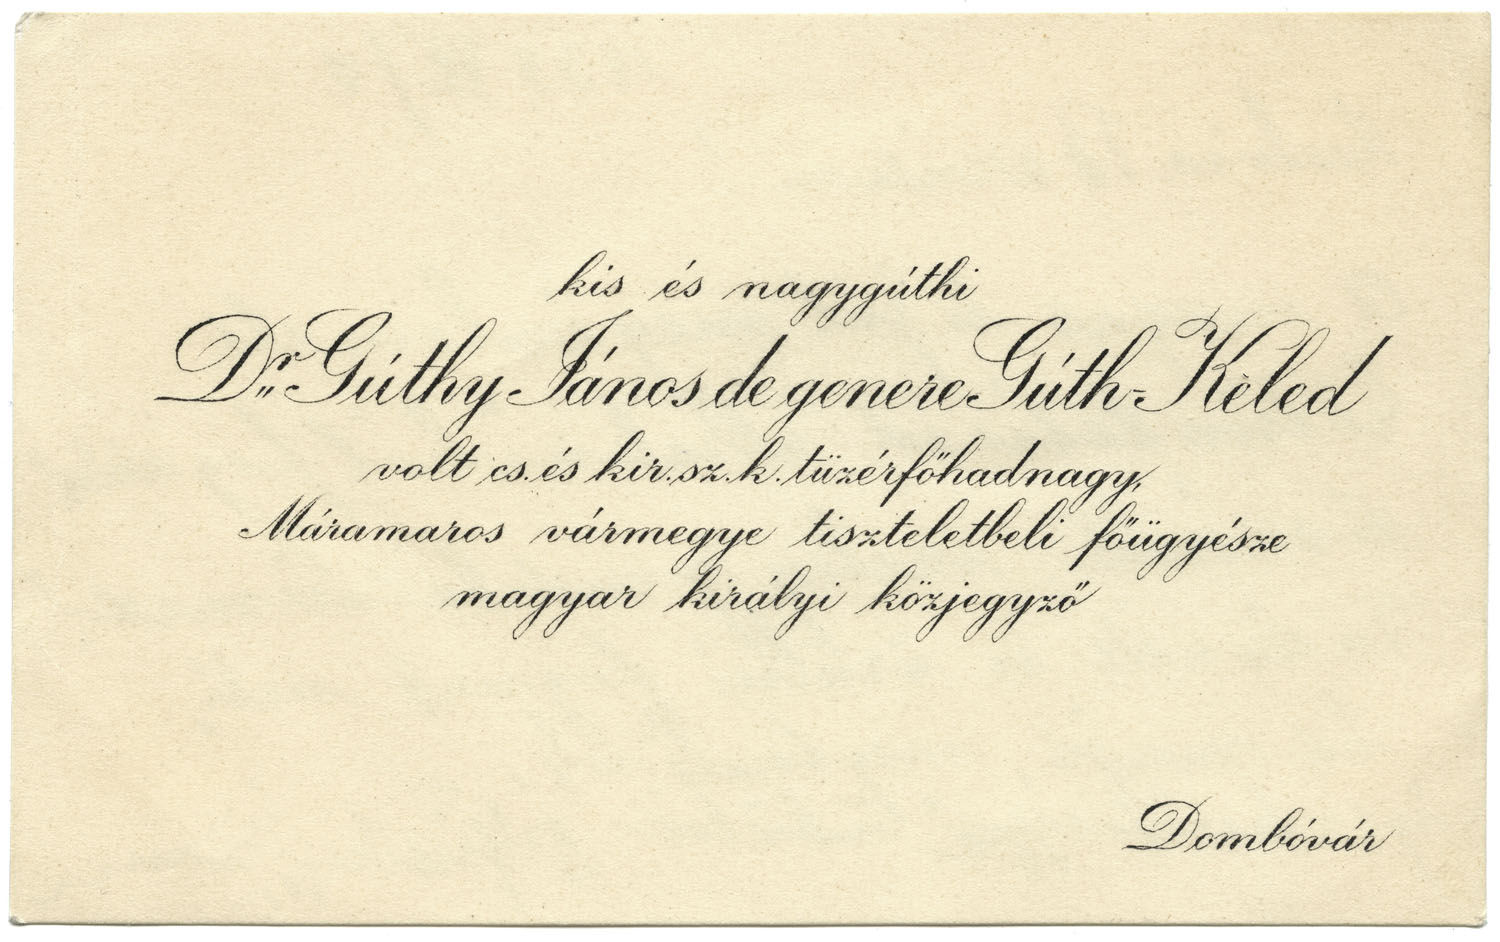 kis és nagygúthi
Dr. Gúthy János de genere Gúth-Kèled
volt cs. és kir. sz. k. tüzérfőhadnagy,
Máramaros vármegye tiszteletbeli főügyésze
magyar királyi közjegyző
Dombóvár